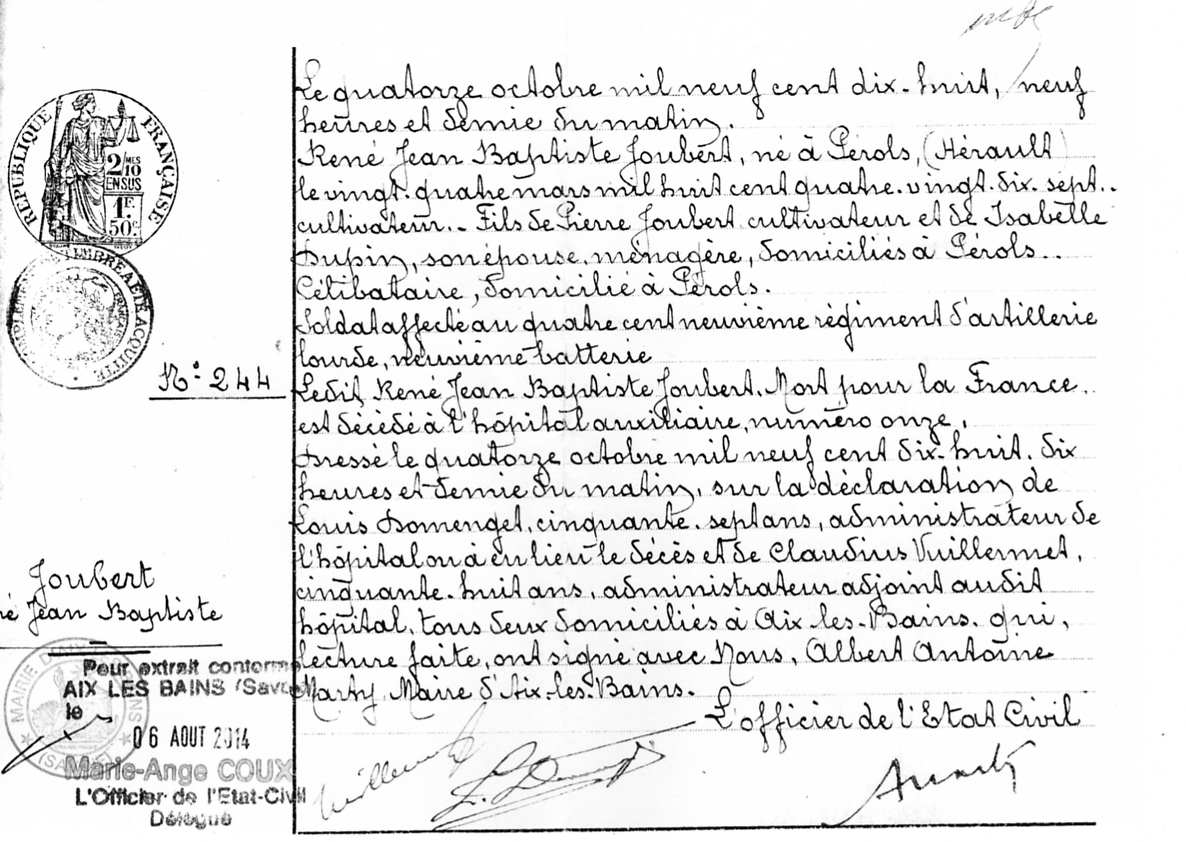 Le quatorze octobre mil neuf cent dix-huit, neuf
heures et demie du matin.
René Jean Baptiste Joubert, né à Pérols, (Hérault)
le vingt-quatre mars mil huit cent quatre-vingt-dix-sept..
cultivateur.- Fils de Pierre Joubert cultivateur et de Isabelle
Dupin, son épouse, ménagère, domiciliés à Pérols..
Célibataire, domicilié à Pérols.
Soldat affecté au quatre cent neuvième régiment d'artillerie
lourde, neuvième batterie
Ledit René Jean Baptiste Joubert, Mort pour la France,
est décédé à l'hôpital auxiliaire, numéro onze,
Dressé le quatorze octobre mil neuf cent dix-huit, dix
heures et demie du matin, sur la déclaration de
Louis Domenget, cinquante-sept ans, administrateur de
l'hôpital ou à eu lieu le décès et de Claudius Vuillermet,
cinquante-huit ans, administrateur adjoint audit
hôpital, tous deux domiciliés à Aix-les-Bains, qui,
lecture faite, ont signé avec Nous, Albert Antoine
Marty Maire d'Aix-les-Bains.
L'officier de l'Etat Civil
RÉPUBLIQUE FRANÇAISE
2/10
EN SUS
1F.
50c
N°.244
Joubert
né Jean Baptiste
MAIRIE
Pour extrait conforme
AIX LES BAINS (Savoie)
le
06 AOUT 2014
Marie-Ange COUX
L'Officier de l'Etat-Civil
Délégué